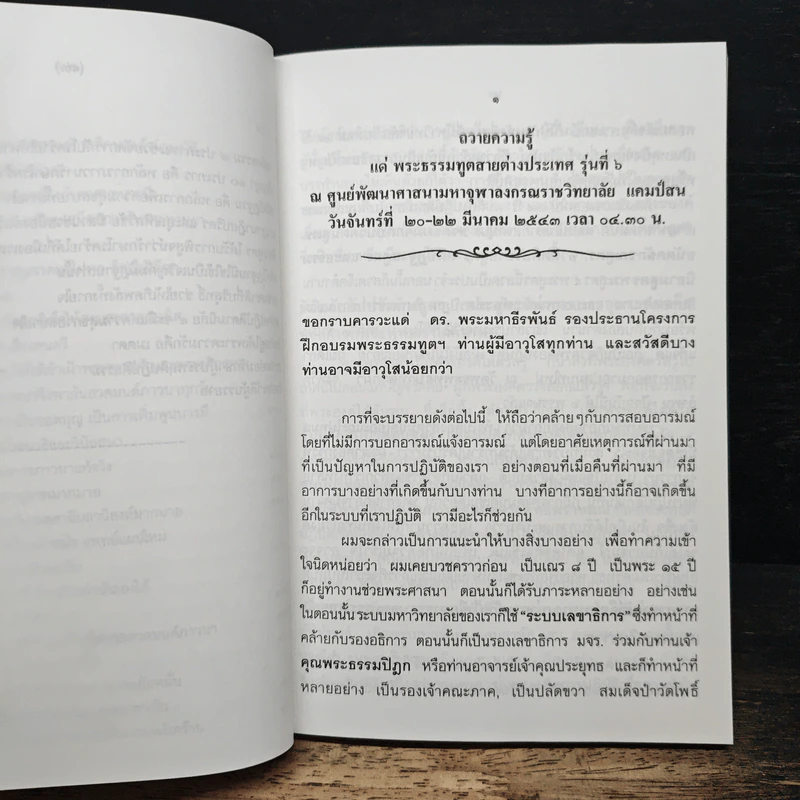 ๑
ถวายความรู้
แด่ พระธรรมทูตสายต่างประเทศ รุ่นที่ ๖
ณ ศูนย์พัฒนาศาสนามหาจุฬาลงกรณราชวิทยาลัย แคมป์สน
วันจันทร์ที่ ๒๐-๒๒ มีนาคม ๒๕๔๓ เวลา ๐๔.๓๐ น.
ขอกราบคารวะแด่ ดร. พระมหาธีรพันธ์ รองประธานโครงการ
ฝึกอบรมพระธรรมทูตฯ ท่านผู้มีอาวุโสทุกท่าน และสวัสดีบาง
ท่านอาจมีอาวุโสน้อยกว่า
การที่จะบรรยายดังต่อไปนี้ ให้ถือว่าคล้ายๆกับการสอบอารมณ์
โดยที่ไม่มีการบอกอารมณ์แจ้งอารมณ์ แต่โดยอาศัยเหตุการณ์ที่ผ่านมา
ที่เป็นปัญหาในการปฏิบัติของเรา อย่างตอนที่เมื่อคืนที่ผ่านมา ที่มี
อาการบางอย่างที่เกิดขึ้นกับบางท่าน บางทีอาการอย่างนี้ก็อาจเกิดขึ้น
อีกในระบบที่เราปฏิบัติ เรามีอะไรก็ช่วยกัน
ผมจะกล่าวเป็นการแนะนำให้บางสิ่งบางอย่าง เพื่อทำความเข้า
ใจนิดหน่อยว่า ผมเคยบวชคราวก่อน เป็นเณร ๘ ปี เป็นพระ ๑๕ ปี
ก็อยู่ทำงานช่วยพระศาสนา ตอนนั้นก็ได้รับภาระหลายอย่าง อย่างเช่น
ในตอนนั้น ระบบมหาวิทยาลัยของเราก็ใช้ “ระบบเลขาธิการ” ซึ่งทำหน้าที่
คล้ายกับรองอธิการ ตอนนั้นก็เป็นรองเลขาธิการ มจร. ร่วมกับท่านเจ้า
คุณพระธรรมปิฎก หรือท่านอาจารย์เจ้าคุณประยุทธ และก็ทำหน้าที่
หลายอย่าง เป็นรองเจ้าคณะภาค, เป็นปลัดขวา สมเด็จป๋าวัดโพธิ์